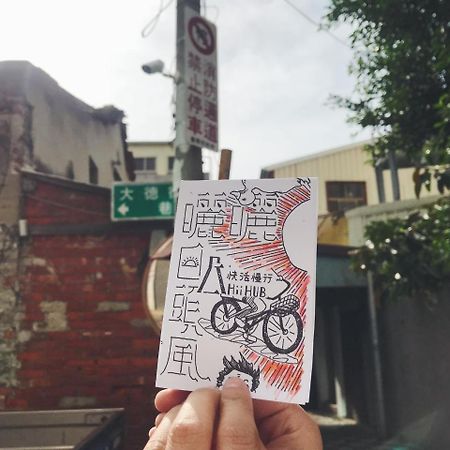 消防通道
禁止停車
大德巷
曬曬
白頭風
快活慢行
HiiHUB